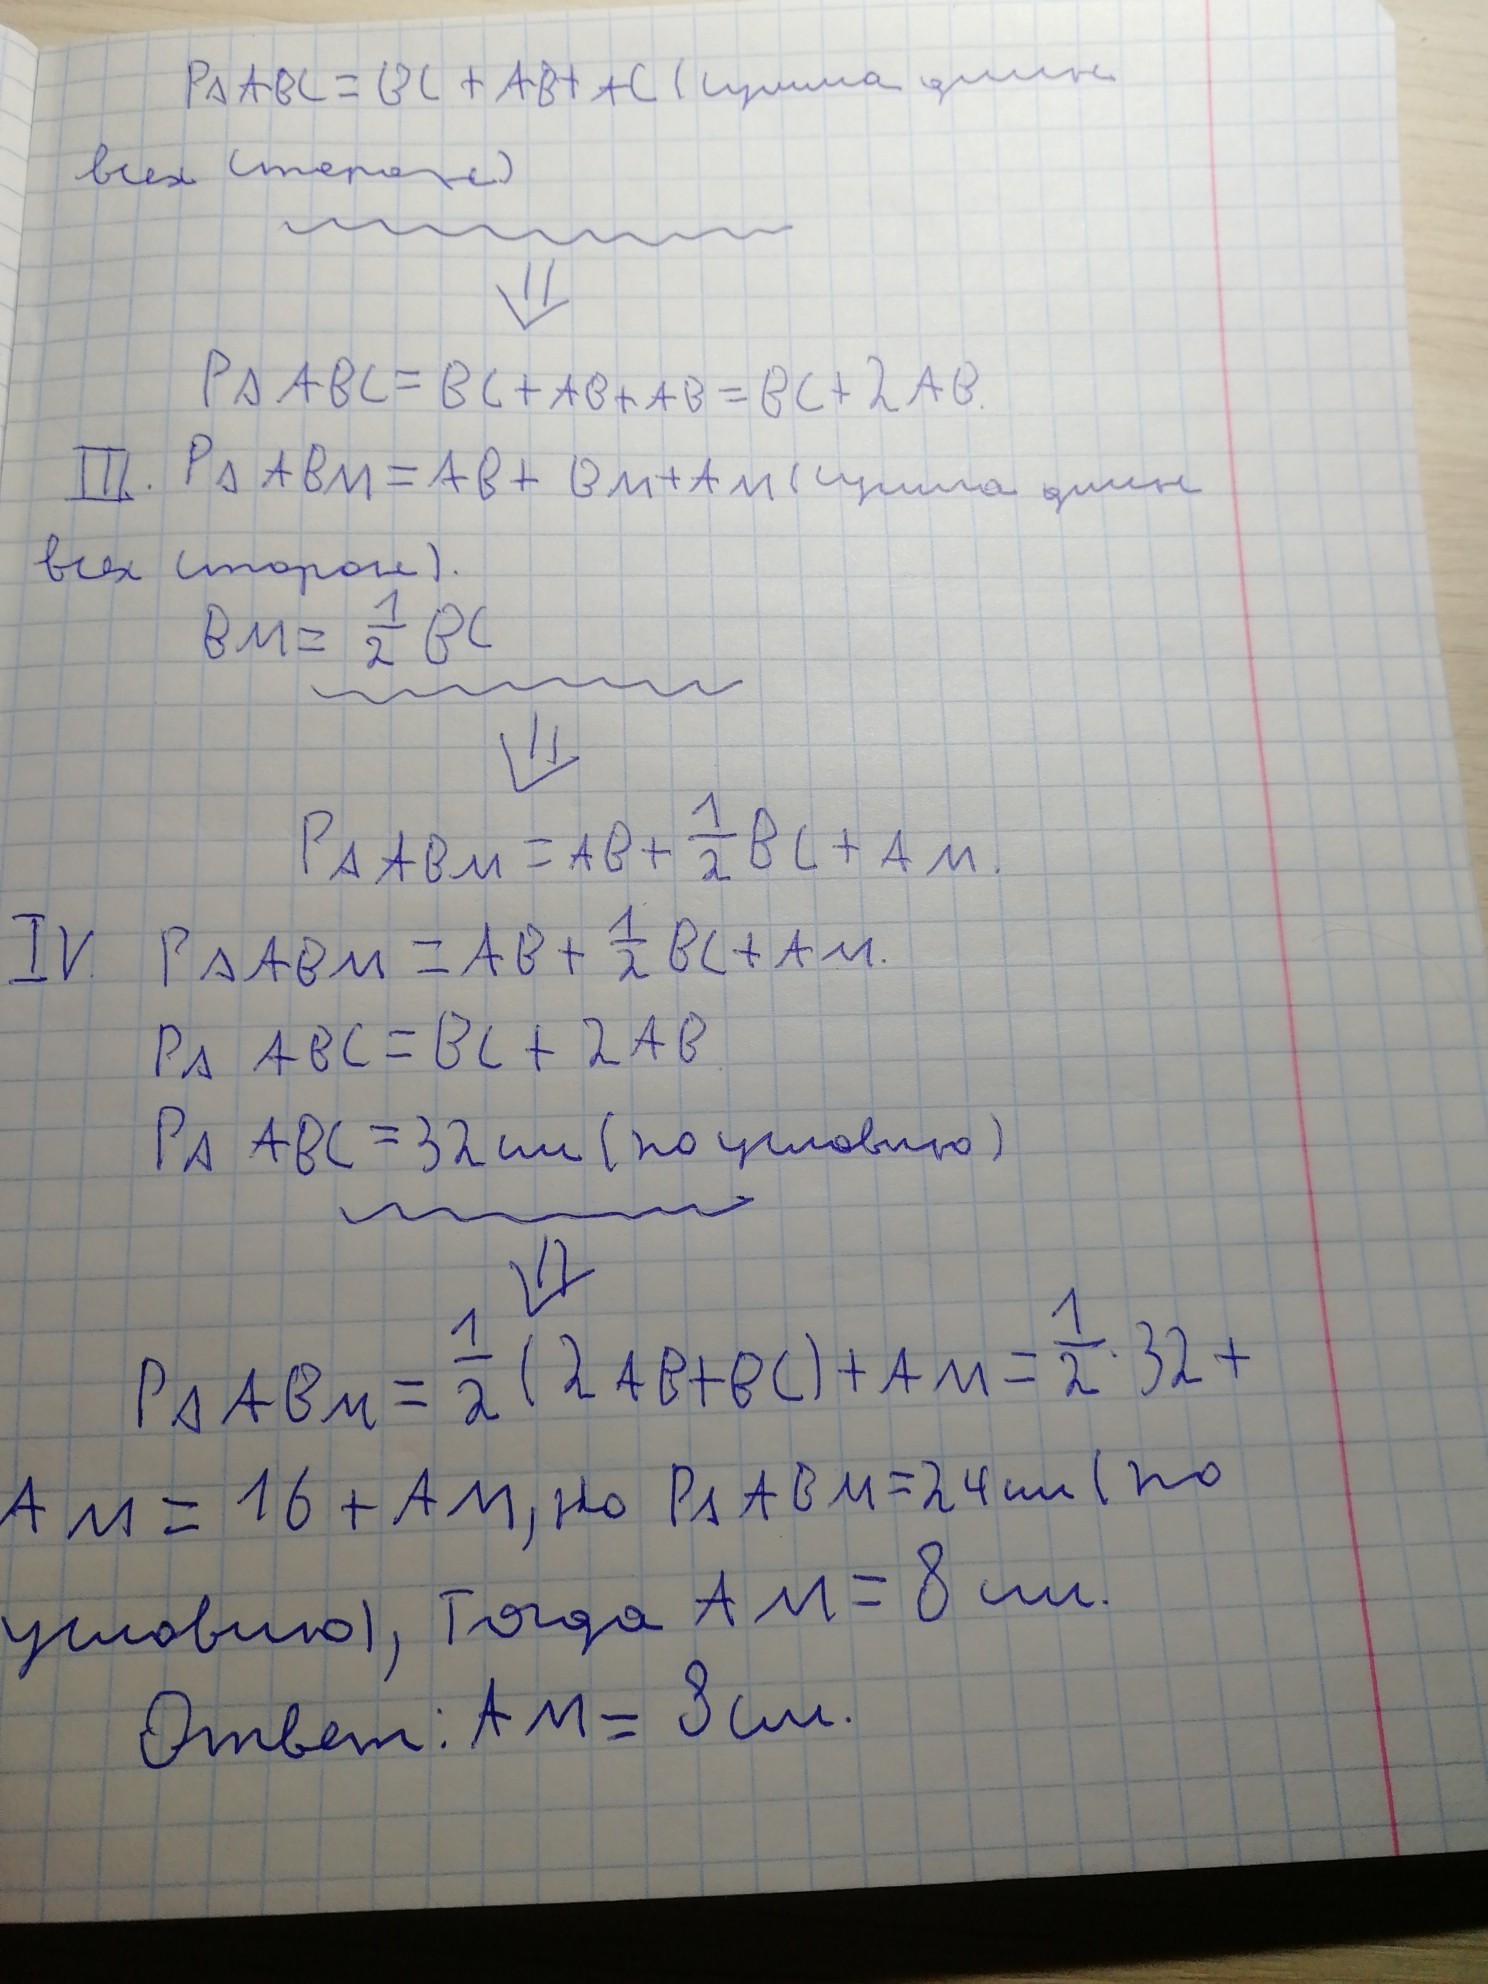 P∆ ABC = BC + AB + AC (сумма длин
всех сторон)
⇓
P∆ ABC = BC + AB + AB = BC + 2AB.
III. P∆ ABM = AB + BM + AM (сумма длин
всех сторон).
BM = 1/2 BC
⇓
P∆ ABM = AB + 1/2 BC + AM.
IV. P∆ ABM = AB + 1/2 BC + AM.
P∆ ABC = BC + 2AB
P∆ ABC = 32 см (по условию)
⇓
P∆ ABM = 1/2 (2AB + BC) + AM = 1/2 · 32 +
AM = 16 + AM, но P∆ ABM = 24 см (по
условию), Тогда AM = 8 см.
Ответ: AM = 8 см.